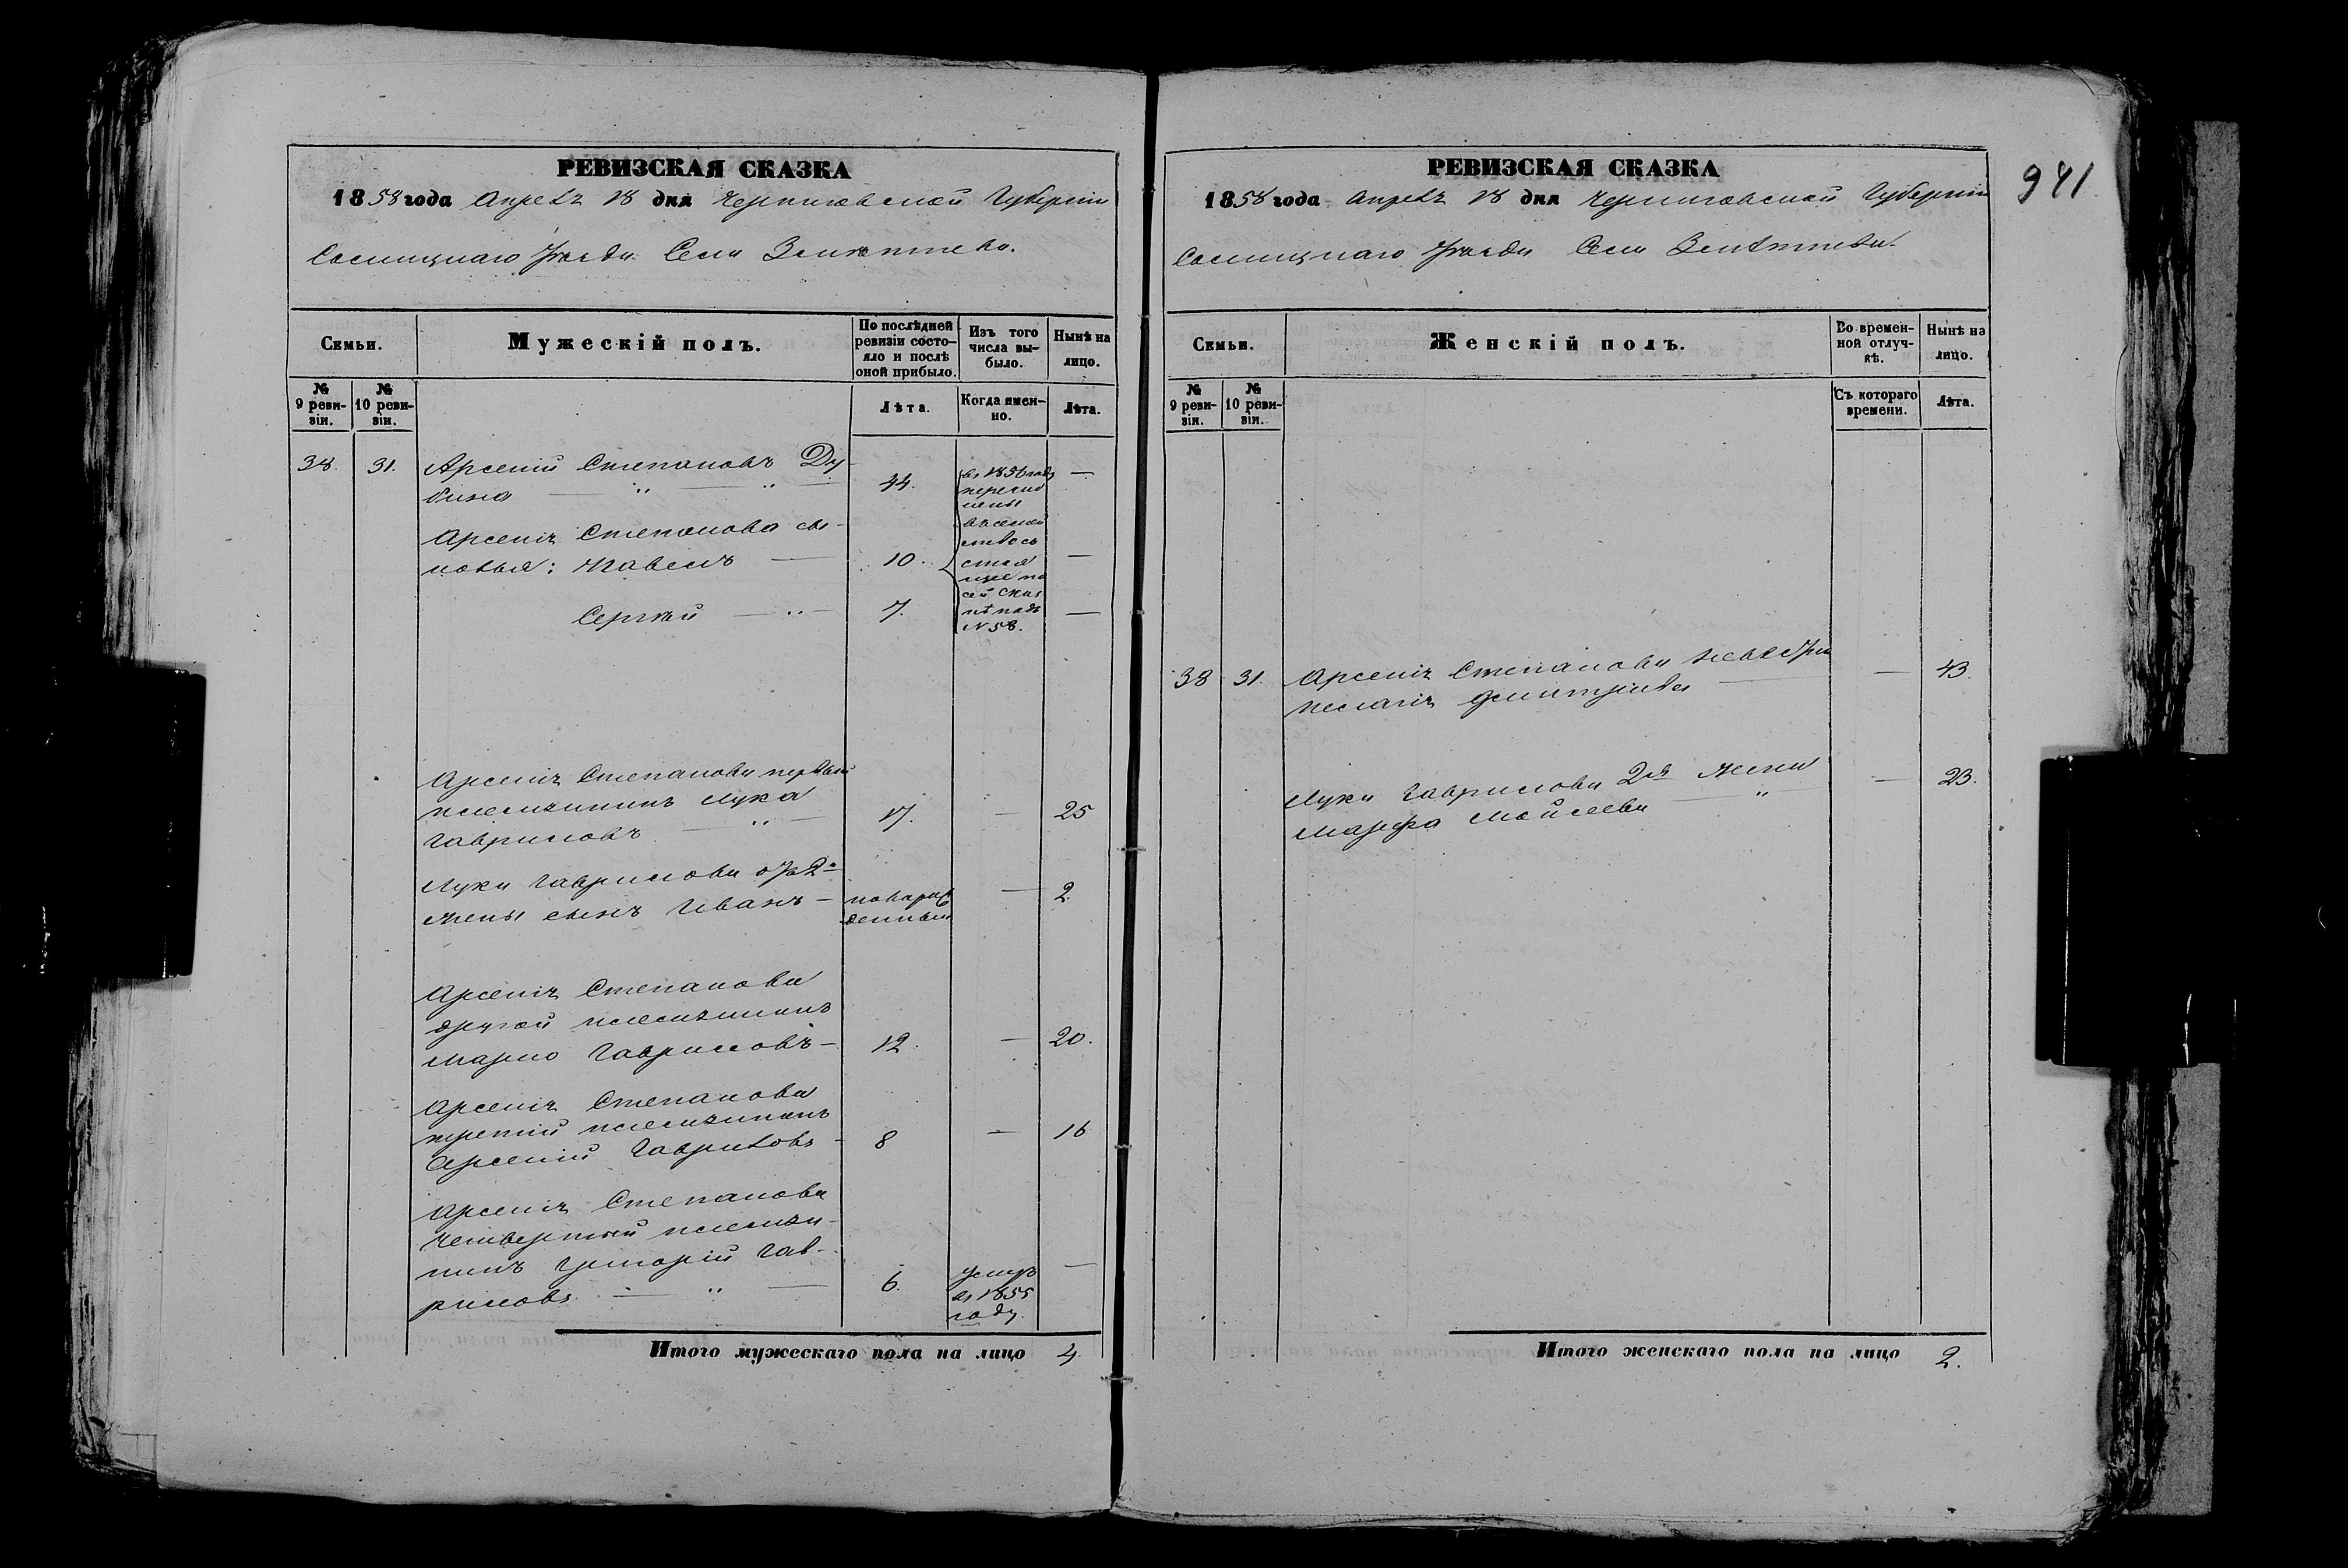 РЕВИЗСКАЯ СКАЗКА
1858 года Апреля 18 дня Черниговской Губерніи
Сосницкаго Уѣзда Села
Семьи.
Мужескій полъ.
По послѣдней ревизіи состояло и послѣ оной прибыло.
Изъ того числа выбыло.
Нынѣ на лицо.
№ 9 ревизіи.
№ 10 ревизіи.
Лѣта.
Когда именно.
Лѣта.
38. 31. Арсеній Степановъ Ду-
бина — „ — „ — 44. —
въ 1856 году
перечис
лены
въ семей
ство со
стоя
щее по
сей сказ
кѣ подъ
№ 58.
Арсенія Степанова сы-
новья: Павелъ — 10. —
Сергѣй — „ — 7. —
Арсенія Степанова первый
племянникъ Лука
Гавриловъ — „ — 17. — 25
Луки Гаврилова отъ 2й
жены сынъ Иванъ — новорож
денный — 2.
Арсенія Степанова
другой племянникъ
Марко Гавриловъ — 12. — 20.
Арсенія Степанова
третій племянникъ
Арсеній Гавриловъ — 8 — 16
Арсенія Степанова
четвертый племян-
никъ Григорій Гав-
риловъ — „ — 6. —
умеръ
въ 1855
году
Итого мужескаго пола на лицо 4.
РЕВИЗСКАЯ СКАЗКА
1858 года Апреля 18 дня Черниговской Губерніи
Сосницкаго Уѣзда Села
941
Семьи.
Женскій полъ.
Во временной отлучкѣ.
Нынѣ на лицо.
№ 9 ревизіи.
№ 10 ревизіи.
Съ котораго времени.
Лѣта.
38 31. Арсенія Степанова невѣстка
Пелагія Дмитріева — — 43.
Луки Гаврилова 2я жена
Марфа Моисеева — „ — 23.
Итого женскаго пола на лицо 2.